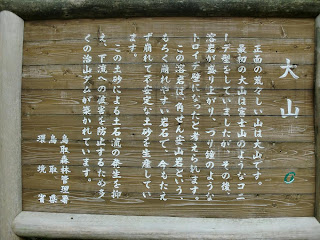 大山
正面の荒々しい山は大山です。
最初の大山は富士山のようなコニ
ーデ型をしていましたが、その後、
溶岩が盛り上がり、つり鐘のような
トロイデ型になったと考えられます。
この溶岩は「角せん安山岩」という、
もろく崩れやすい岩石で、今もたえ
ず崩れて不安定な土砂を生産してい
ます。
この土砂による土石流の発生を抑
え、下流への被害を防止するため多
くの治山ダムが築かれています。
鳥取森林管理署
鳥取県
環境省